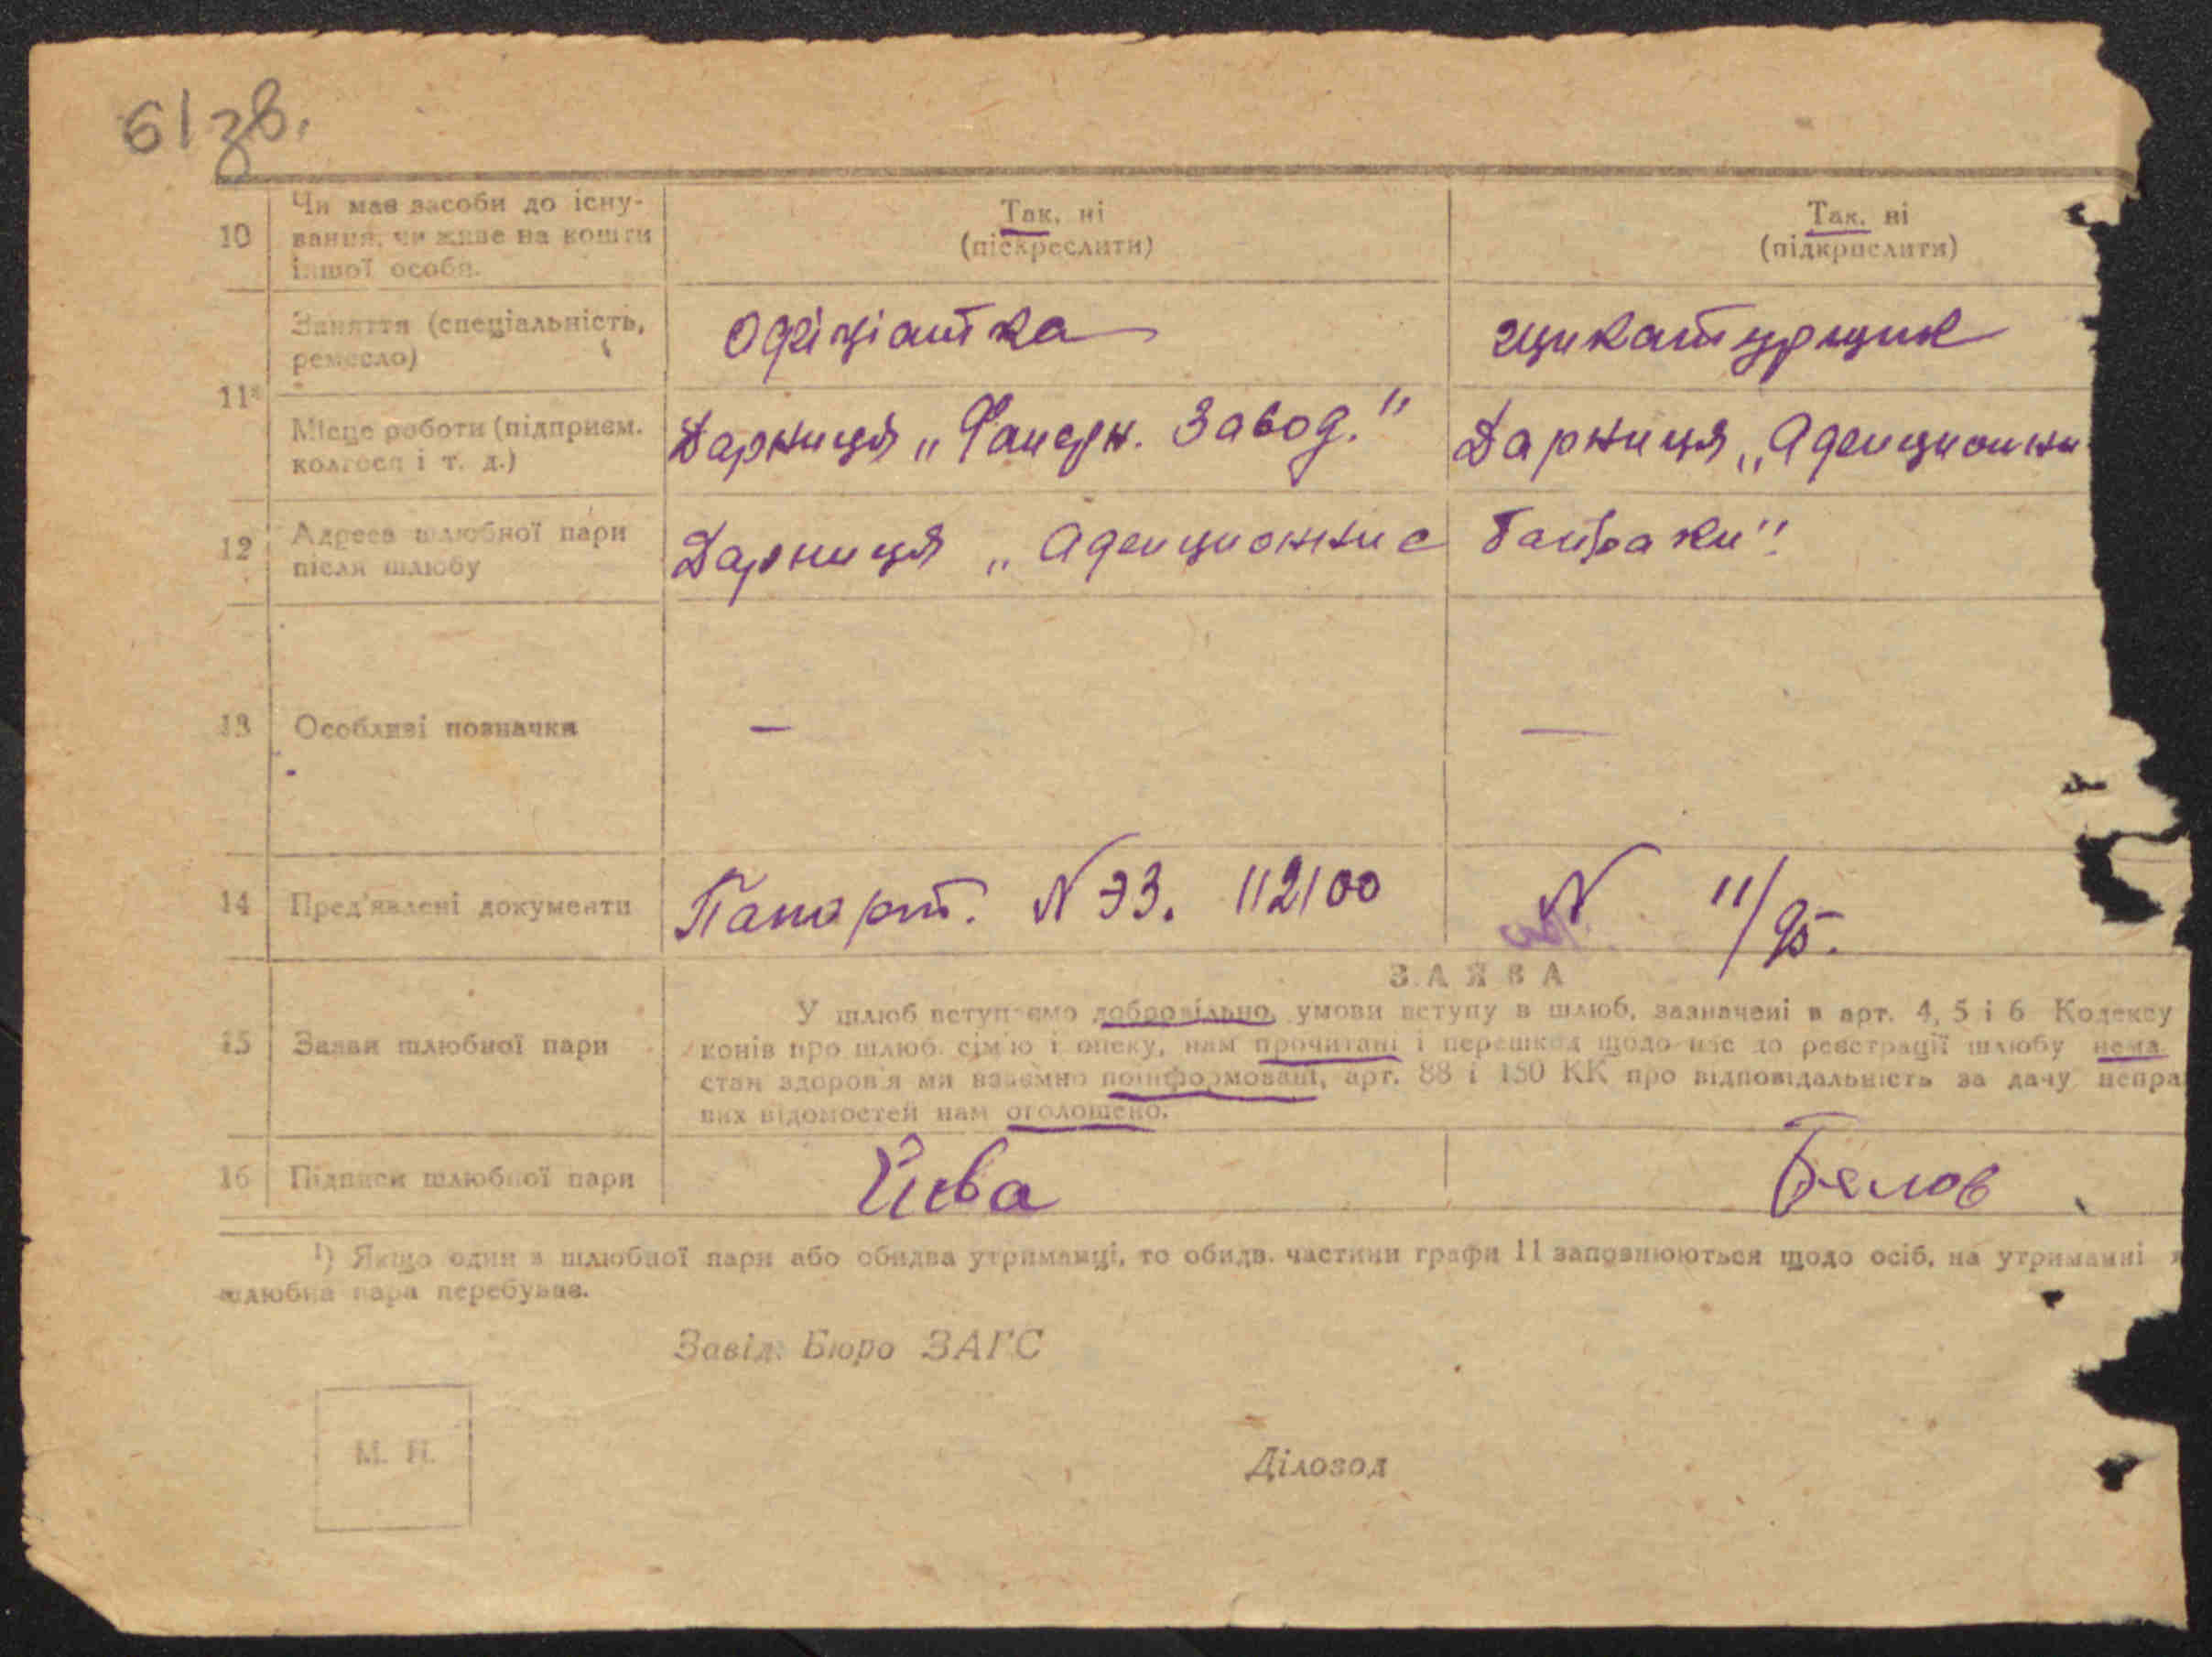 61 зв.
10 Чи має засоби до існу-
вання, чи живе на кошти
іншої особи.
Так, ні
(піскреслити)
Так, ні
(підкрислити)
11¹
Заняття (спеціальність,
ремесло)
Офіціантка
щикатурщик
Місце роботи (підприєм.
колгосп і т. д.)
Дарниця „Фанерн. Завод."
Дарниця „
12 Адреса шлюбної пари
після шлюбу
Дарниця „ Бараки"
13 Особливі позначки — —
14 Пред'явлені документи
Паспорт. N ЭЗ. 112100
N 11/95.
ЗАЯВА
15 Заяви шлюбної пари
У шлюб вступаємо добровільно, умови вступу в шлюб, зазначені в арт. 4, 5 і 6 Кодексу
конів про шлюб, сім'ю і опеку, нам прочитані і перешкод щодо нас до реєстрації шлюбу нема
стан здоров'я ми взаємно поінформовані, арт. 88 і 180 КК про відповідальність за дачу непра
вих відомостей нам оголошено.
16 Підписи шлюбної пари
Белов
¹) Якщо один з шлюбної пари або обидва утриманці, то обидв. частини графи 11 заповнюються щодо осіб, на утриманні я
шлюбна пара перебуває.
Завід. Бюро ЗАГС
М. П.
Діловод